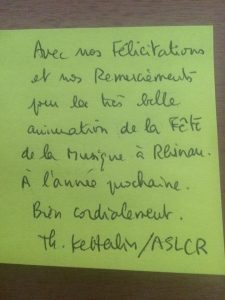 Avec nos Félicitations
et nos Remerciements
pour la très belle
animation de la Fête
de la Musique à Rhinau.
À l'année prochaine.
Bien cordialement.
Th. Ketterlin/ASLCR